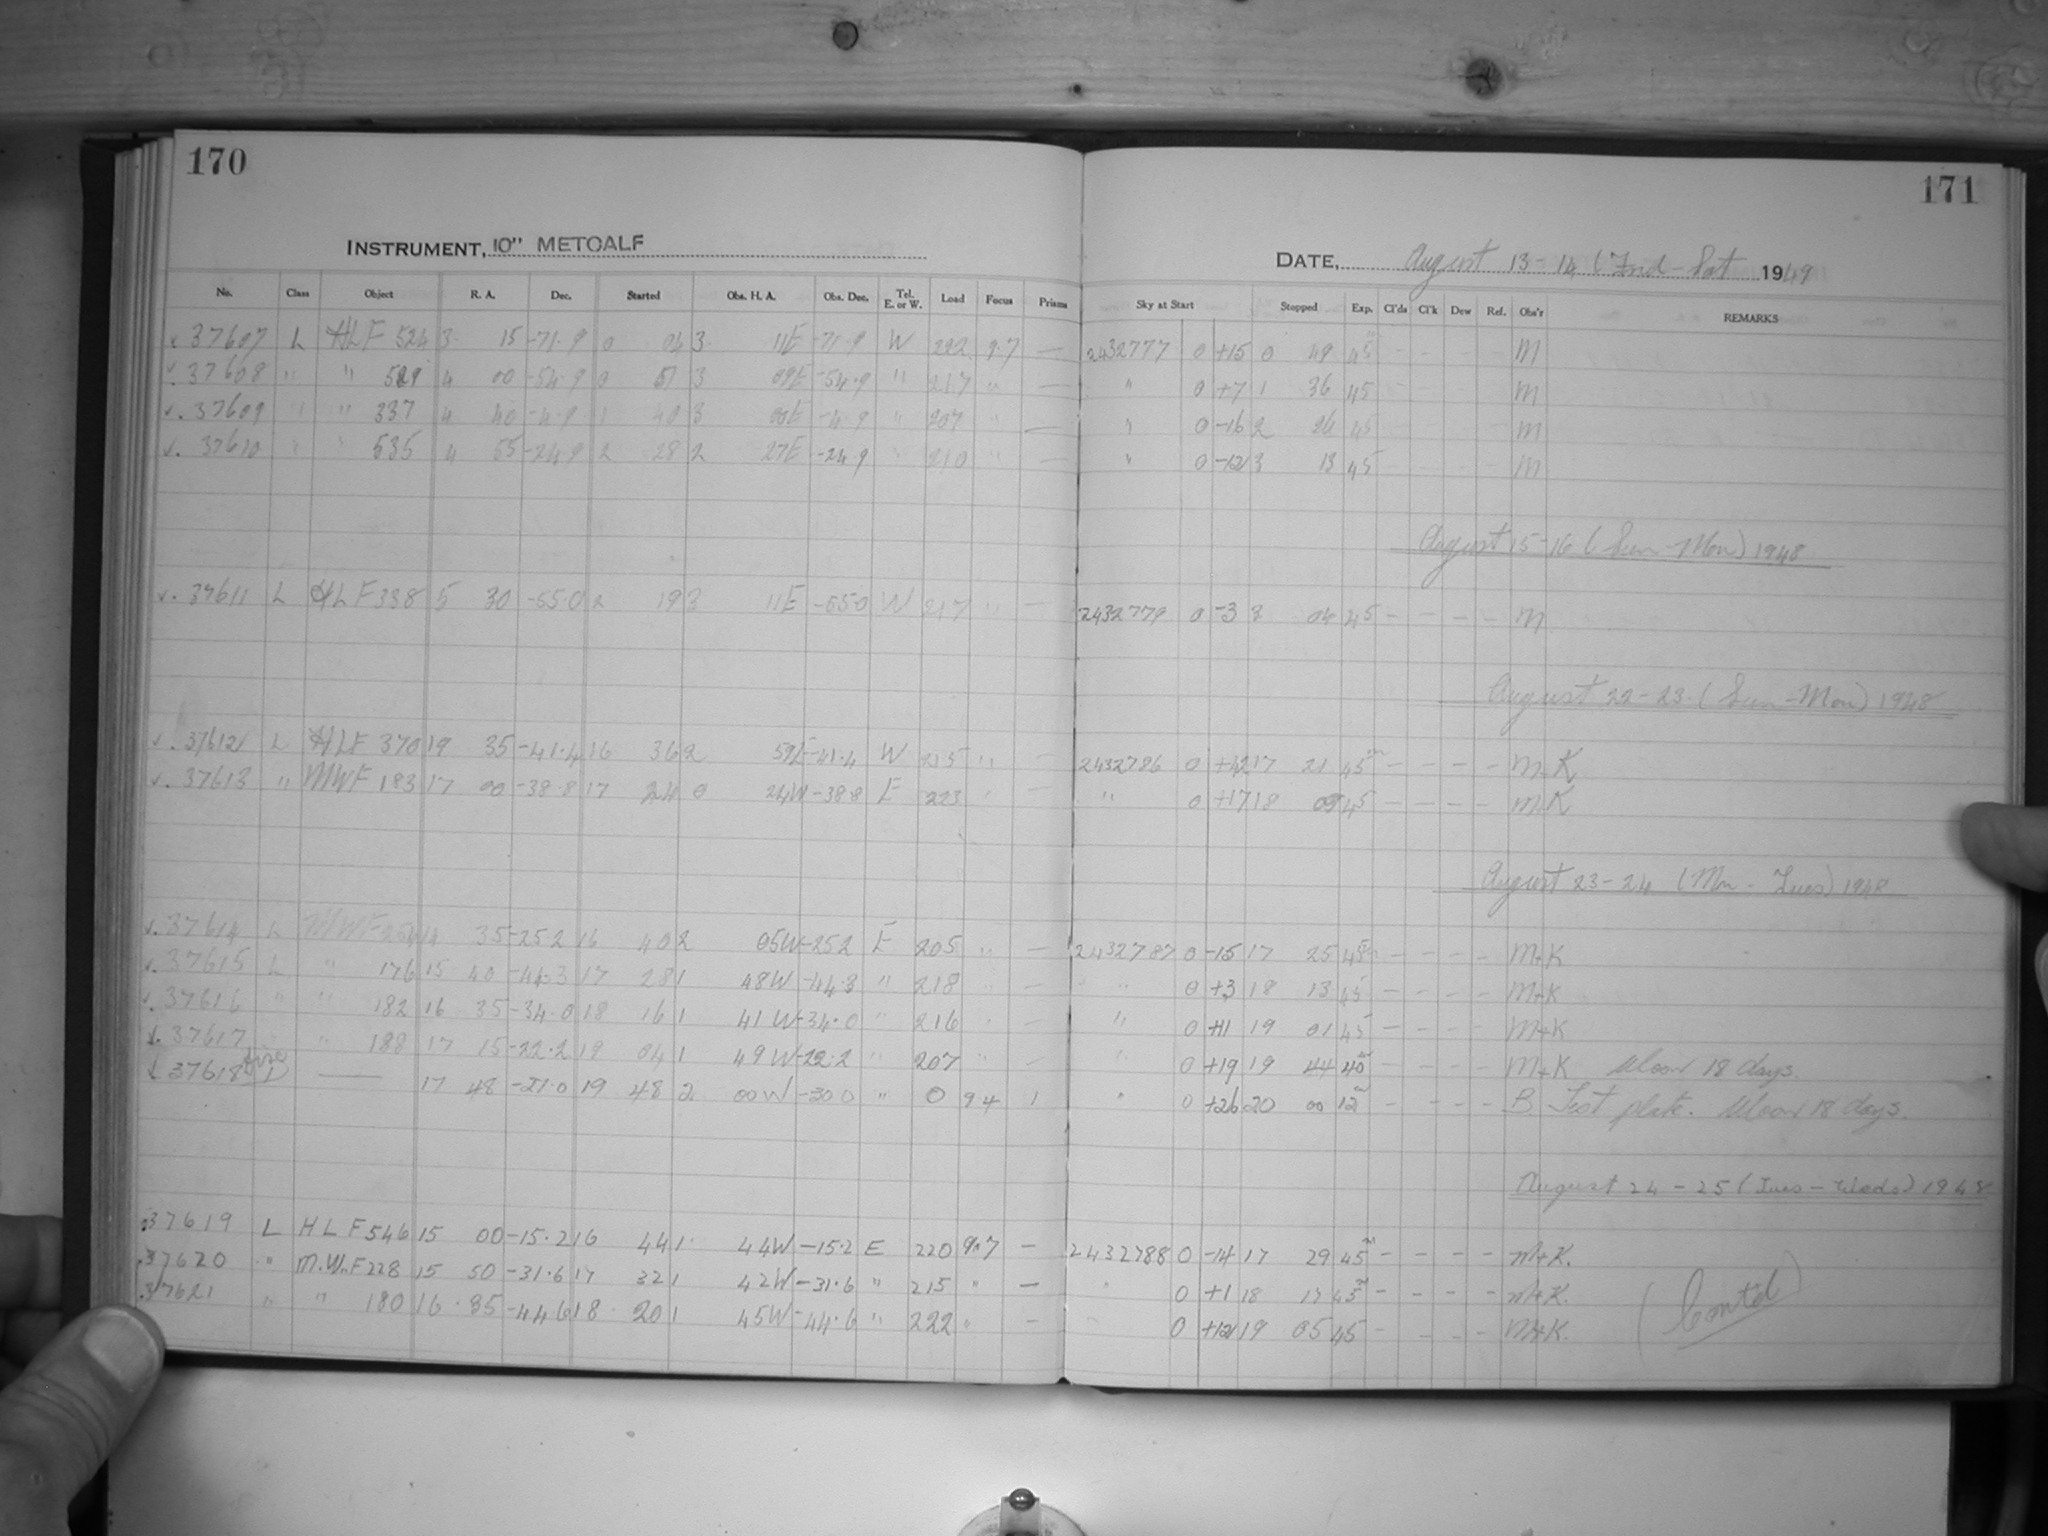 170
171
INSTRUMENT, 10" METCALF
DATE, August 13-14 (Frid-Sat 1949
No. Class Object R. A. Dec. Started Obs. H. A. Obs. Dec. Tel. E. or W. Load Focus Prisms Sky at Start Stopped Exp. Cl'ds Cl'k Dew Ref. Obs'r REMARKS
37607 L HLF 524 3 15 -71.9 0 04 3 11E -71.9 W 292 9.7 — 2432777 0 +15 0 49 45 - - - - M
37608 " " 529 4 00 -54.9 0 51 3 09E -54.9 " 217 " — " 0 +7 1 36 45 - - - - M
37609 " " 337 4 40 -4.9 1 40 3 00E -4.9 " 207 " — " 0 -16 2 26 45 - - - - M
37610 " " 535 4 55 -24.9 2 28 2 27E -24.9 " 210 " — " 0 -12 3 13 45 - - - - M
August 15-16 (Sun-Mon) 1948
37611 L HLF 338 5 30 -55.0 2 19 3 11E -55.0 W 217 " — 2432779 0 -3 3 04 45 - - - - M
August 22-23 (Sun-Mon) 1948
37612 L HLF 370 19 35 -41.4 16 36 2 59E -41.4 W 215 " — 2432786 0 +42 17 21 45m - - - - M+K
37613 " MWF 183 17 00 -38.8 17 24 0 24W -38.8 E 223 " — " 0 +17 18 09 45 - - - - M+K
August 23-24 (Mon-Tues) 1948
37614 L MWF 14 35 -25.2 16 40 2 05W -25.2 E 205 " — 2432787 0 -15 17 25 45m - - - - M+K
37615 L " 176 15 40 -44.3 17 28 1 48W -44.3 " 218 " — " 0 +3 18 13 45 - - - - M+K
37616 " " 182 16 35 -34.0 18 16 1 41W -34.0 " 216 " — " 0 +11 19 01 45 - - - - M+K
37617 " " 188 17 15 -22.2 19 04 1 49W -22.2 " 207 " — " 0 +19 19 44 40m - - - - M+K Moon 18 days.
37618 I — 17 48 -27.0 19 48 2 00W -30.0 " 0 9.4 1 " 0 +26 20 00 12m - - - - B Test plate. Moon 18 days.
August 24-25 (Tues-Weds) 1948
37619 L HLF 546 15 00 -15.2 16 44 1 44W -15.2 E 220 9.7 — 2432788 0 -14 17 29 45m - - - - M+K.
37620 " M.W.F 228 15 50 -31.6 17 32 1 42W -31.6 " 215 " — " 0 +1 18 17 45m - - - - M+K.
37621 " " 180 16 35 -44.6 18 20 1 45W -44.6 " 222 " — " 0 +12 19 05 45 - - - - M+K.
(Contd)